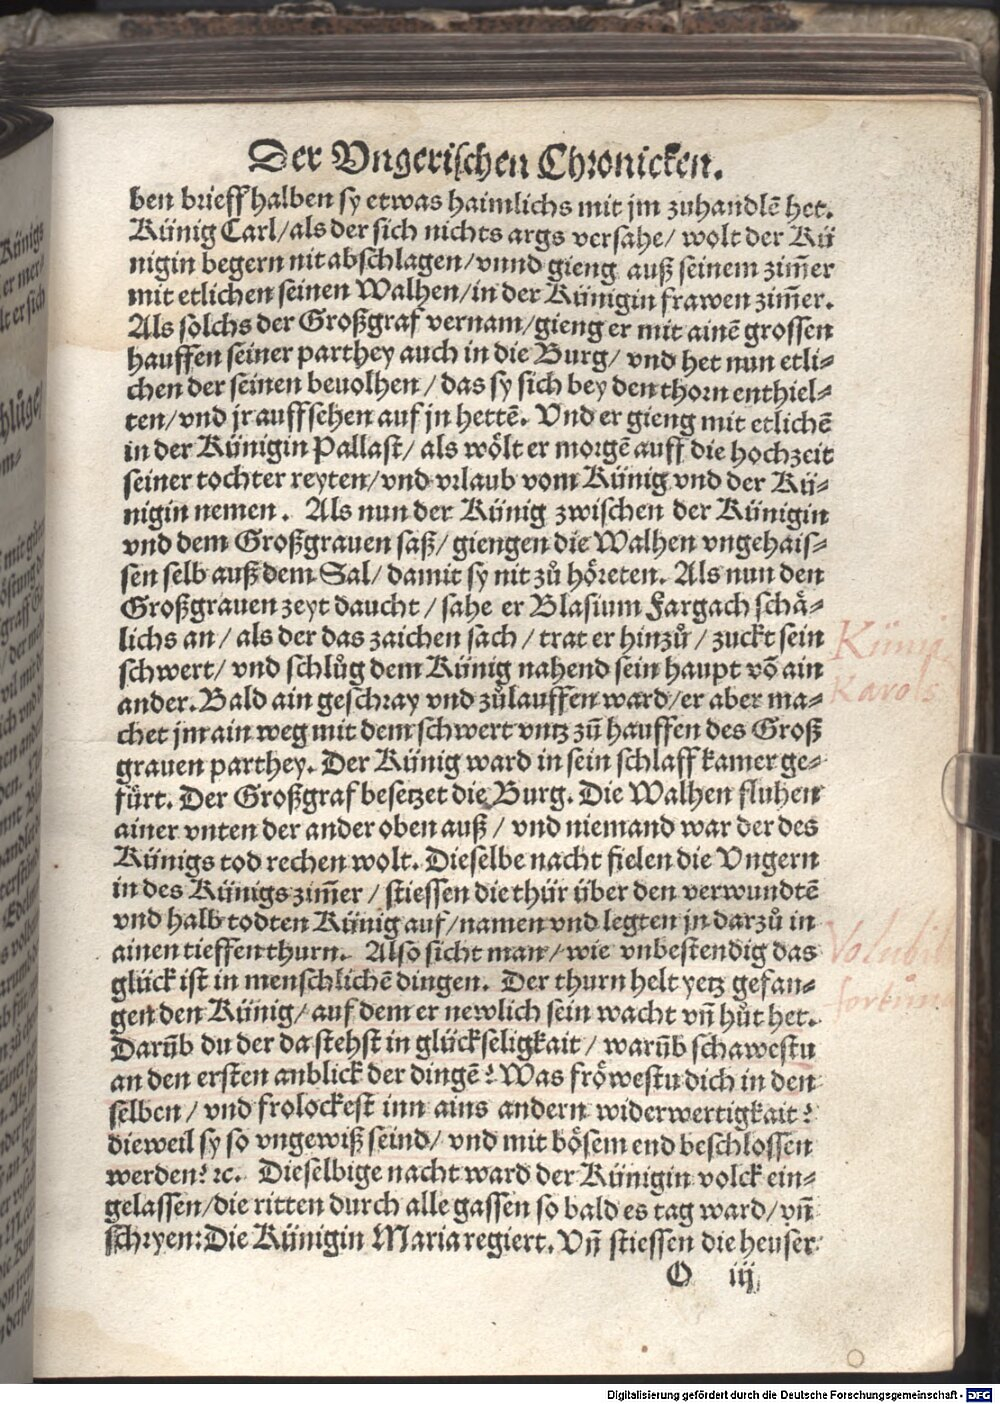 Der Vngerischen Chronicken.
ben brieff halben sy etwas haimlichs mit jm zuhandlē het.
Künig Carl/ als der sich nichts args versahe/ wolt der Kü
nigin begern nit abschlagen/ vnnd gieng auß seinem zim̄er
mit etlichen seinen Walhen/ in der Künigin frawen zim̄er.
Als solchs der Großgraf vernam/ gieng er mit ainē grossen
hauffen seiner parthey auch in die Burg/ vnd het nun etli-
chen der seinen beuolhen/ das sy sich bey den thorn enthiel-
ten/ vnd jr auffsehen auf jn hettē. Vnd er gieng mit etlichē
in der Künigin Pallast/ als wölt er morgē auff die hochzeit
seiner tochter reyten/ vnd vrlaub vom Künig vnd der Kü-
nigin nemen. Als nun der Künig zwischen der Künigin
vnd dem Großgrauen saß/ giengen die Walhen vngehais-
sen selb auß dem Sal/ damit sy nit zů höreten. Als nun den
Großgrauen zeyt daucht/ sahe er Blasium Fargach schä-
lichs an/ als der das zaichen sach/ trat er hinzů/ zuckt sein
schwert/ vnd schlůg dem Künig nahend sein haupt vō ain
ander. Bald ain geschray vnd zůlauffen ward/ er aber ma-
chet jm ain weg mit dem schwert vntz zū hauffen des Groß
grauen parthey. Der Künig ward in sein schlaff kamer ge-
fürt. Der Großgraf besetzet die Burg. Die Walhen fluhen
ainer vnten der ander oben auß/ vnd niemand war der des
Künigs tod rechen wolt. Dieselbe nacht fielen die Vngern
in des Künigs zim̄er/ stiessen die thür über den verwundtē
vnd halb todten Künig auf/ namen vnd legten jn darzů in
ainen tieffen thurn. Also sicht man/ wie vnbestendig das
glück ist in menschlichē dingen. Der thurn helt yetz gefan-
gen den Künig/ auf dem er newlich sein wacht vn̄ hůt het.
Darūb du der da stehst in glückseligkait/ warūb schawestu
an den ersten anblick der dingē? Was fröwestu dich in den
selben/ vnd frolockest inn ains andern widerwertigkait?
dieweil sy so vngewiß seind/ vnd mit bösem end beschlossen
werden? ꝛc. Dieselbige nacht ward der Künigin volck ein-
gelassen/ die ritten durch alle gassen so bald es tag ward/ vn̄
schryen: Die Künigin Maria regiert. Vn̄ stiessen die heuser
O iij
Künig
Karols
fortuna
Digitalisierung gefördert durch die Deutsche Forschungsgemeinschaft - DFG